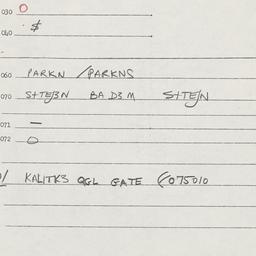 030 O
040 $
060 PARKN / PARKNS
070 S+TEJ3N BA D3 M S+TEJN
071 —
072 O
KALITK3 QGL GATE